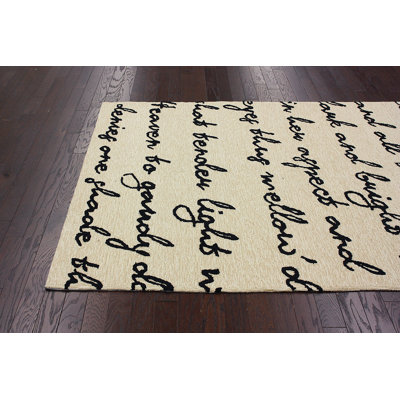 and all
dark and bright
in her aspect and
eyes thus mellow'd
that tender light
Heaven to gaudy
denies one shade th